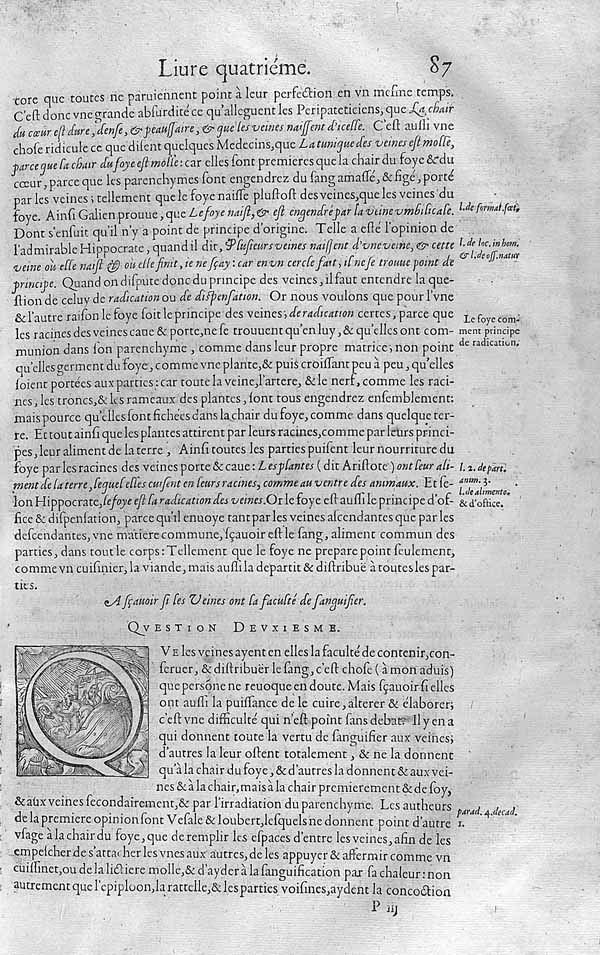 Liure quatriéme. 87
core que toutes ne paruiennent point à leur perfection en vn mesme temps.
C'est donc vne grande absurdité ce qu'alleguent les Peripateticiens, que La chair
du cœur est dure, dense, & peaussaire, & que les veines naissent d'icelle. C'est aussi vne
chose ridicule ce que disent quelques Medecins, que La tunique des veines est molle,
parce que la chair du foye est molle: car elles sont premieres que la chair du foye & du
cœur, parce que les parenchymes sont engendrez du sang amassé, & figé, porté
par les veines; tellement que le foye naisse plustost des veines, que les veines du
foye. Ainsi Galien prouue, que Le foye naist, & est engendré par la veine vmbilicale.
l. de format. fœt.
Dont s'ensuit qu'il n'y a point de principe d'origine. Telle a esté l'opinion de
l'admirable Hippocrate, quand il dit, Plusieurs veines naissent d'vne veine, & cette
l. de loc. in hom.
& l. de oss. natur
veine où elle naist & où elle finit, ie ne sçay: car en vn cercle fait, il ne se trouue point de
principe. Quand on dispute donc du principe des veines, il faut entendre la que-
stion de celuy de radication ou de dispensation. Or nous voulons que pour l'vne
& l'autre raison le foye soit le principe des veines; de radication certes, parce que
Le foye com-
ment principe
de radication.
les racines des veines caue & porte, ne se trouuent qu'en luy, & qu'elles ont com-
munion dans son parenchyme, comme dans leur propre matrice; non point
qu'elles germent du foye, comme vne plante, & puis croissant peu à peu, qu'elles
soient portées aux parties: car toute la veine, l'artere, & le nerf, comme les raci-
nes, les troncs, & les rameaux des plantes, sont tous engendrez ensemblement:
mais pource qu'elles sont fichées dans la chair du foye, comme dans quelque ter-
re. Et tout ainsi que les plantes attirent par leurs racines, comme par leurs princi-
pes, leur aliment de la terre, Ainsi toutes les parties puisent leur nourriture du
foye par les racines des veines porte & caue: Les plantes (dit Aristote) ont leur ali-
l. 2. de part.
anim. 3.
l. de alimento.
& d'office.
ment de la terre, lequel elles cuisent en leurs racines, comme au ventre des animaux. Et se-
lon Hippocrate, le foye est la radication des veines. Or le foye est aussi le principe d'of-
fice & dispensation, parce qu'il enuoye tant par les veines ascendantes que par les
descendantes, vne matiere commune, sçauoir est le sang, aliment commun des
parties, dans tout le corps: Tellement que le foye ne prepare point seulement,
comme vn cuisinier, la viande, mais aussi la departit & distribuë à toutes les par-
ties.
A sçauoir si les Veines ont la faculté de sanguifier.
QVESTION DEVXIESME.
QVE les veines ayent en elles la faculté de contenir, con-
seruer, & distribuër le sang, c'est chose (à mon aduis)
que persõne ne reuoque en doute. Mais sçauoir si elles
ont aussi la puissance de le cuire, alterer & élaborer;
c'est vne difficulté qui n'est point sans debat? Il y en a
qui donnent toute la vertu de sanguifier aux veines;
d'autres la leur ostent totalement, & ne la donnent
qu'à la chair du foye, & d'autres la donnent & aux vei-
nes & à la chair, mais à la chair premierement & de soy,
& aux veines secondairement, & par l'irradiation du parenchyme. Les autheurs
de la premiere opinion sont Vesale & Ioubert, lesquels ne donnent point d'autre
parad. 4. decad.
1.
vsage à la chair du foye, que de remplir les espaces d'entre les veines, afin de les
empescher de s'attacher les vnes aux autres, de les appuyer & affermir comme vn
cuissinet, ou de la lictiere molle, & d'ayder à la sanguification par sa chaleur: non
autrement que l'epiploon, la rattelle, & les parties voisines, aydent la concoction
P iij